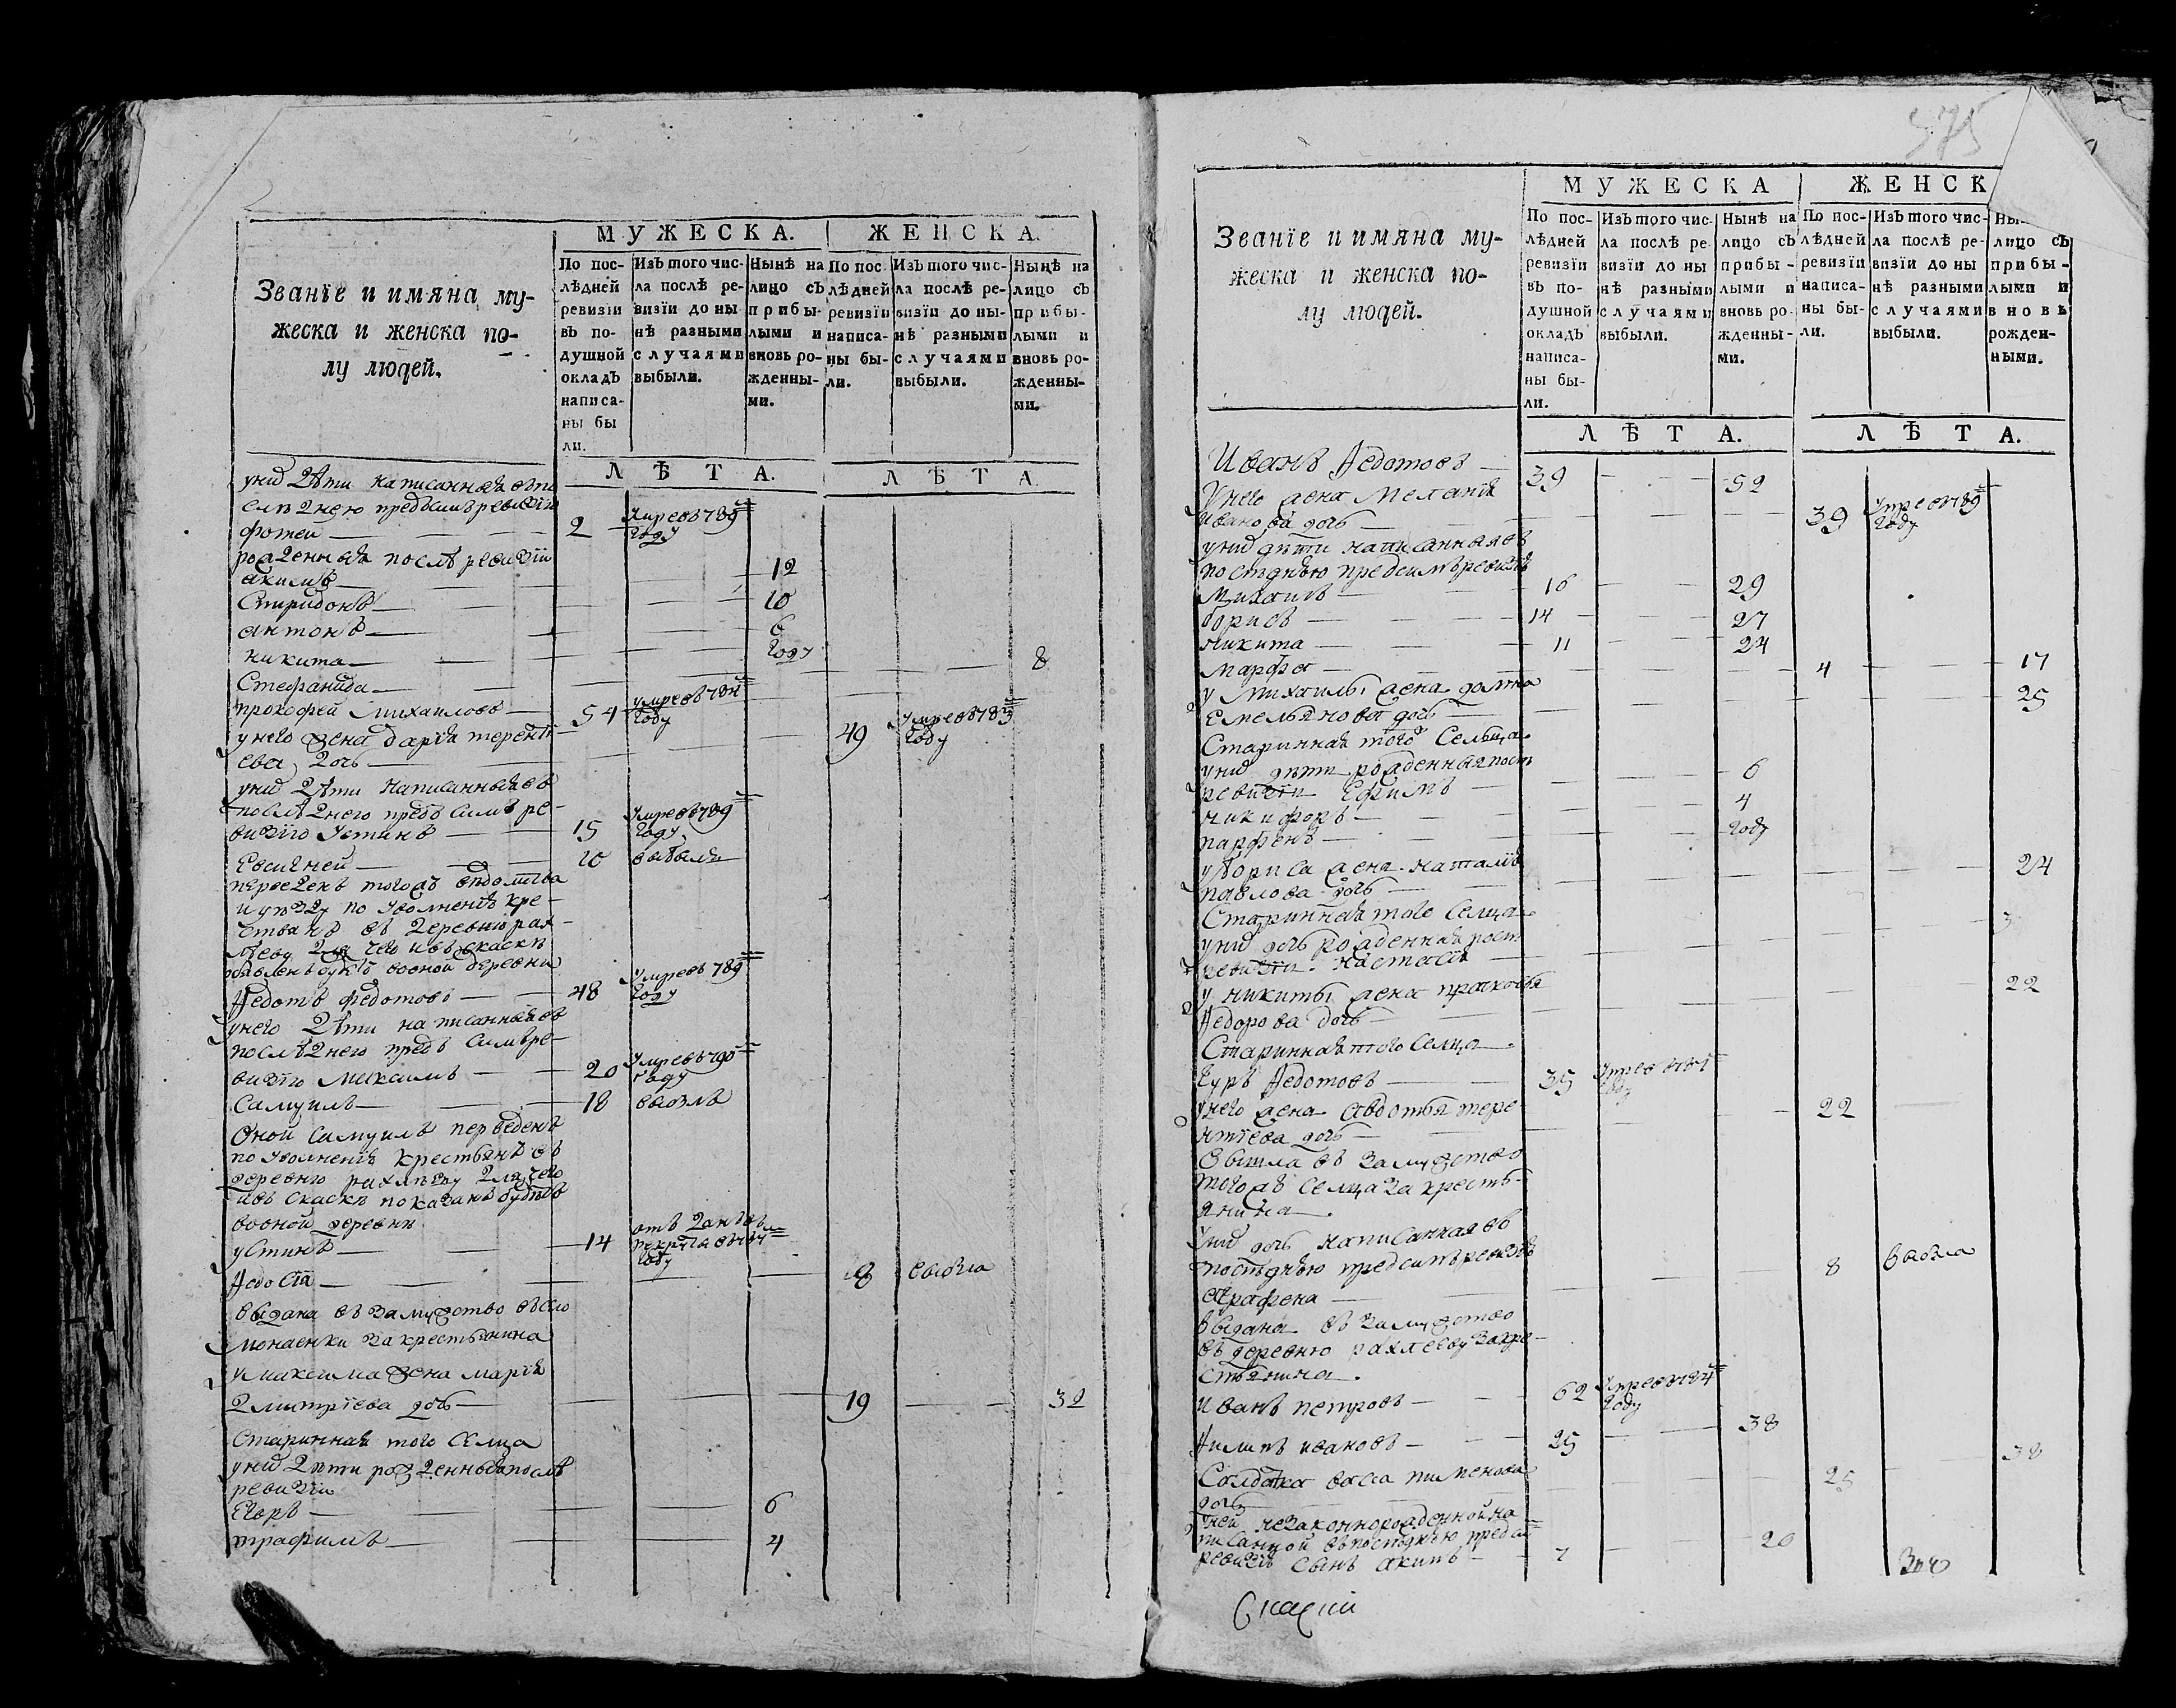 МУЖЕСКА.
ЖЕНСКА.
Званїе и имяна му-
жеска и женска по-
лу людей.
По пос-
лѣдней
ревизїи
въ по-
душной
окладъ
написа-
ны бы
ли.
Изъ того чис-
ла послѣ ре-
визїи до ны
нѣ разными
случаями
выбыли.
Нынѣ на
лицо съ
прибы-
лыми и
вновь ро-
жденны-
ми.
По пос
лѣдней
ревизїи
написа-
ны бы-
ли.
Изъ того чис-
ла послѣ ре-
визїи до ны-
нѣ разными
случаями
выбыли.
Нынѣ на
лицо съ
прибы-
лыми и
вновь ро-
жденны-
ми.
ЛѢТА.
ЛѢТА
уних дѣти написанныя въпо
следнею предъсимъ ревизїю
фотей 2 Умре въ 789 году
рожденныя послѣ ревизїи
акимъ 12
Спиридонъ 10
антонъ 6
никита году
Стефанида 8
прокофей михаиловъ 54 умре въ году
у него жена дарія теренть 49 Умре въ 783 году
ева дочь
уних дѣти написанныя въ
последнею предъ симъ ре-
визїю Устинъ 15 Умре въ 789 году
Евсигней 10 выбылъ
переведенъ того жъ ведомства
и уезду по уволненію кре-
стьянъ въ деревню рах-
леву для чего и въ скаскѣ
воной деревни
Федотъ федотовъ 48 Умре въ 789 году
у него дѣти написанныя въ
последнею предъ симъ ре-
визїю максимъ 20 Умре въ 790 году
Самуилъ 18 выбылъ
Оной Самуилъ переведенъ
по уволненію крестьянъ въ
деревню рахлеву для чего
и въ скаскѣ показанъ будетъ
воной деревни
устинъ 14 отъ данъ въ рекруты въ году
8 выбыла
выдана въ замужство въ село
за крестьянина
у максима жена марія
дмитрїева дочь 19 32
Старинная того Селца
уних дѣти рожденныя послѣ
ревизїи
Егоръ 6
трафимъ 4
575
МУЖЕСКА
ЖЕНСК
Званїе и имяна му-
жеска и женска по-
лу людей.
По пос-
лѣдней
ревизїи
въ по-
душной
окладъ
написа-
ны бы-
ли.
Изъ того чис-
ла послѣ ре-
визїи до ны
нѣ разными
случаями
выбыли.
Нынѣ на
лицо съ
прибы-
лыми и
вновь ро-
жденны-
ми.
По пос-
лѣдней
ревизїи
написа-
ны бы-
ли.
Изъ того чис-
ла послѣ ре-
визїи до ны
нѣ разными
случаями
выбыли.
Ны
лицо съ
прибы-
лыми и
вновь
рожден-
ными.
ЛѢТА.
ЛѢТА.
Иванъ Федотовъ 39 52
У него жена Меланія
иванова дочь 39 Умре въ 789 году
уних дѣти написанныя въ
последнюю предсимъ ревизїю
Михаилъ 16 29
борисъ 14 27
никита 11 24
марфа 4 17
у Михаилы жена домна 25
Емельянова дочь
Старинная того Сельца
уних дѣти рожденныя посль
ревизїи Ефимъ 6
никифоръ 4
парфенъ году
у бориса жена наталія 24
павлова дочь
Старинная того Селца
уних дочь рожденная посль 3
ревизїи настасія
у никиты жена прасковья 22
Федорова дочь
Старинная того Селца
Гуръ Федотовъ 35 Умре въ году
у него жена авдотья тере 22
нтїева дочь
вышла въ замужство
того жъ Селца за кресть-
янина
уних дочь написанная въ
последнюю предсимъ ревизїю 8 выбыла
аграфена
выдана въ замужство
въ деревню рахлееву за кре-
стьянина
иванъ петровъ 62 Умре въ 784 году
Филипъ ивановъ 25 38
Солдатка васса пименова 25 38
дочь
у ней незаконнорожденной на
писанной въ последнюю предъ си
ревизїю сынъ акимъ 7 20